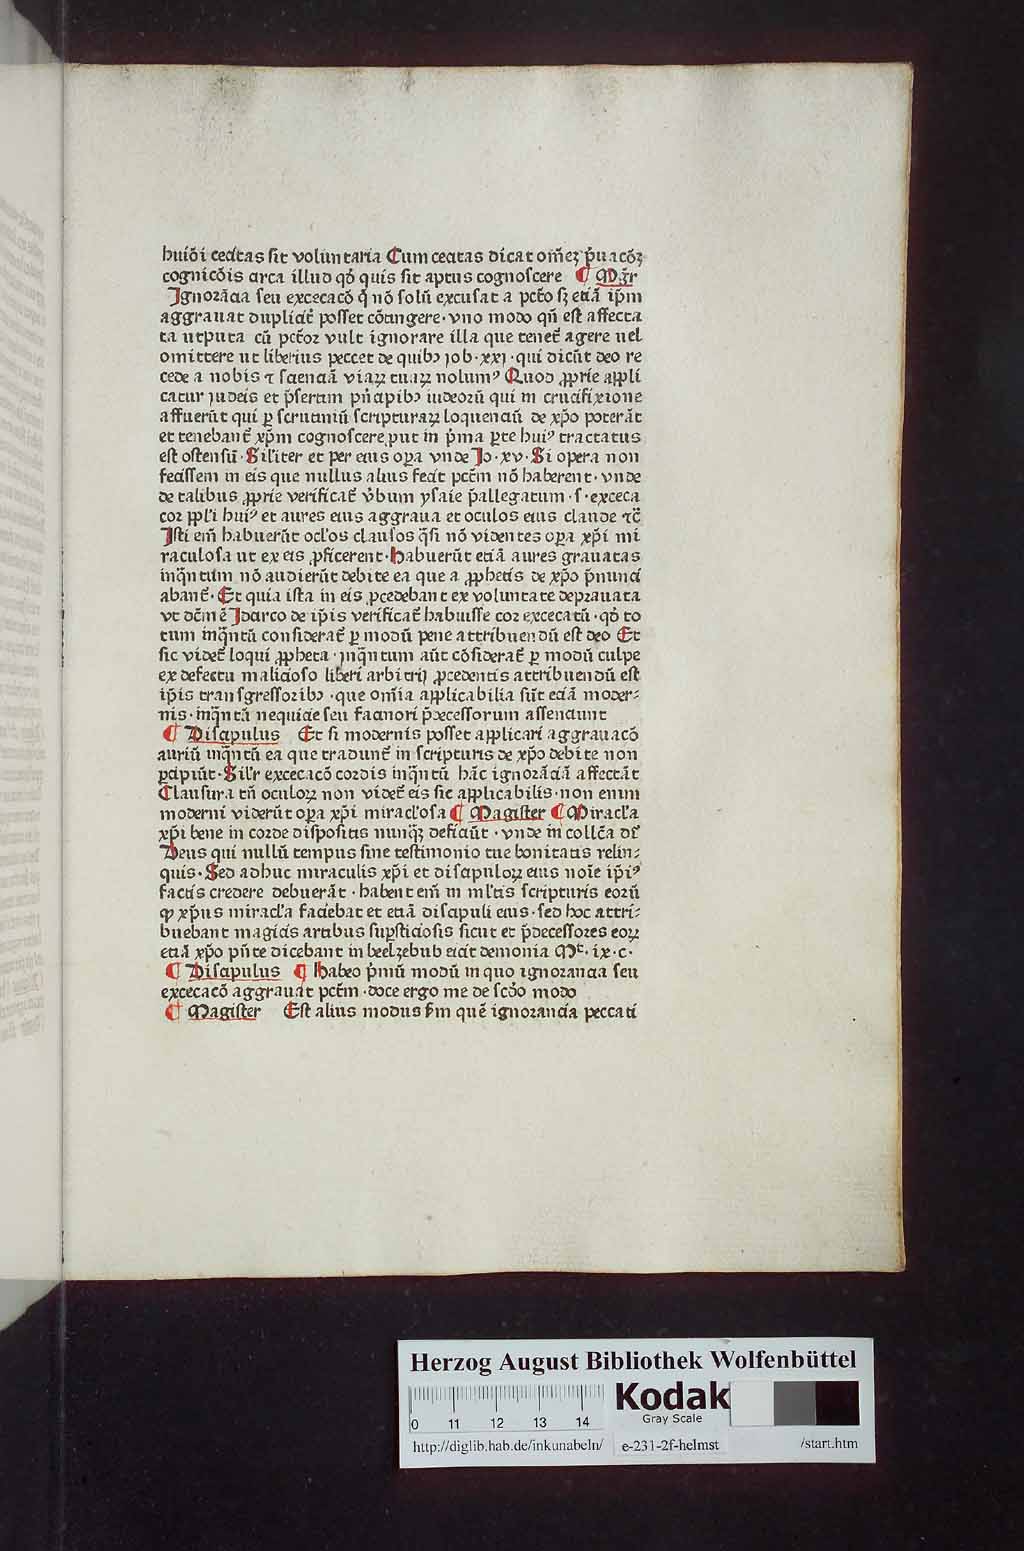 huiõi cecitas sit voluntaria Cum cecitas dicat om̃eꝫ p̃uacõꝫ
cognicõis circa illud qõ quis sit aptus cognoscere ¶ Mg̃r
Ignorãcia seu excecacõ q̃ nõ solũ excusat a pctõ sꝫ eciã ip̃m
aggrauat duplicit̃ posset cõtingere · vno modo qñ est affecta
ta utputa cũ pctõr vult ignorare illa que tenet̃ agere uel
omittere ut liberius peccet de quibꝰ job · xxj · qui dicũt deo re
cede a nobis ⁊ scienciã viaꝝ tuaꝝ nolumꝰ Quod ꝓprie appli
catur judeis et p̃sertim pñcipibꝰ iudeorũ qui in crucifixione
affuerũt qui ꝑ scrutiniũ scripturaꝝ loquenciũ de xp̃o poterãt
et tenebant̃ xp̃m cognoscere put in p̃ma ꝑte huiꝰ tractatus
est ostensũ · Sil'iter et per eius oꝑa vnde Jo · xv · Si opera non
fecissem in eis que nullus alius fecit pctm̃ nõ haberent · vnde
de talibus ꝓprie verificat̃ v̓bum ysaie p̃allegatum · s · exceca
cor ppl'i huiꝰ et aures eius aggraua et oculos eius claude ⁊c̃
Isti em̃ habuerũt ocl'os clausos q̃si nõ videntes oꝑa xp̃i mi
raculosa ut ex eis ꝓficerent · Habuerũt eciã aures grauatas
inq̃ntum nõ audierũt debite ea que a ꝓphetis de xp̃o p̃nunci
abant̃ · Et quia ista in eis ꝓcedebant ex voluntate deprauata
vt dc̃m ẽ Idcirco de ip̃is verificat̃ habuisse cor excecatũ · qõ to
tum inq̃ntũ considerat̃ ꝑ modũ pene attribuendũ est deo Et
sic videt̃ loqui ꝓpheta · jnq̃ntum aũt cõsiderat̃ ꝑ modũ culpe
ex defectu malicioso liberi arbitrij ꝓcedentis attribuendũ est
ip̃is transgressoribꝰ · que om̃ia applicabilia sũt eciã moder⸗
nis · inq̃ntũ nequicie seu facinori p̃decessorum assenciunt
¶ Discipulus Et si modernis posset applicari aggrauacõ
auriũ inq̃ntũ ea que tradunt̃ in scripturis de xp̃o debite non
ꝑcipiũt · Sil'r excecacõ cordis inq̃ntũ hãc ignorãciã affectãt
Clausura tñ oculoꝝ non videt̃ eis sic applicabilis · non enim
moderni viderũt oꝑa xp̃i miracl'osa ¶ Magister ¶ Miracl'a
xp̃i bene in corde dispositis nunq̃ꝫ deficiũt · vnde in collc̃a dr̃
Deus qui nullũ tempus sine testimonio tue bonitatis relin⸗
quis · Sed adhuc miraculis xp̃i et discipuloꝝ eius noĩe ip̃iꝰ
factis credere debuerãt · habent em̃ in ml'tis scripturis eorũ
ꝙ xp̃us miracl'a faciebat et eciã discipuli eius · sed hoc attri⸗
buebant magicis artibus suꝑsticiosis sicut et p̃decessores eoꝝ
eciã xp̃o p̃ñte dicebant in beelzebub eicit demonia Mt̃ · ix · c ·
¶ Discipulus ¶ Habeo p̃mũ modũ in quo ignorancia seu
excecacõ aggrauat pctm̃ · doce ergo me de scd̃o modo
¶ Magister Est alius modus ẜm quẽ ignorancia peccati
Herzog August Bibliothek Wolfenbüttel
0 11 12 13 14
Kodak
Gray Scale
http://diglib.hab.de/inkunabeln/ e-231-2f-helmst /start.htm